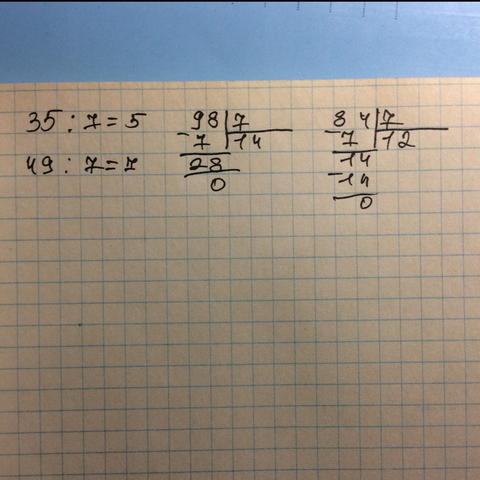 35 : 7 = 5
49 : 7 = 7
98 7
- 7 14
28
0
84 7
- 7 12
14
- 14
0